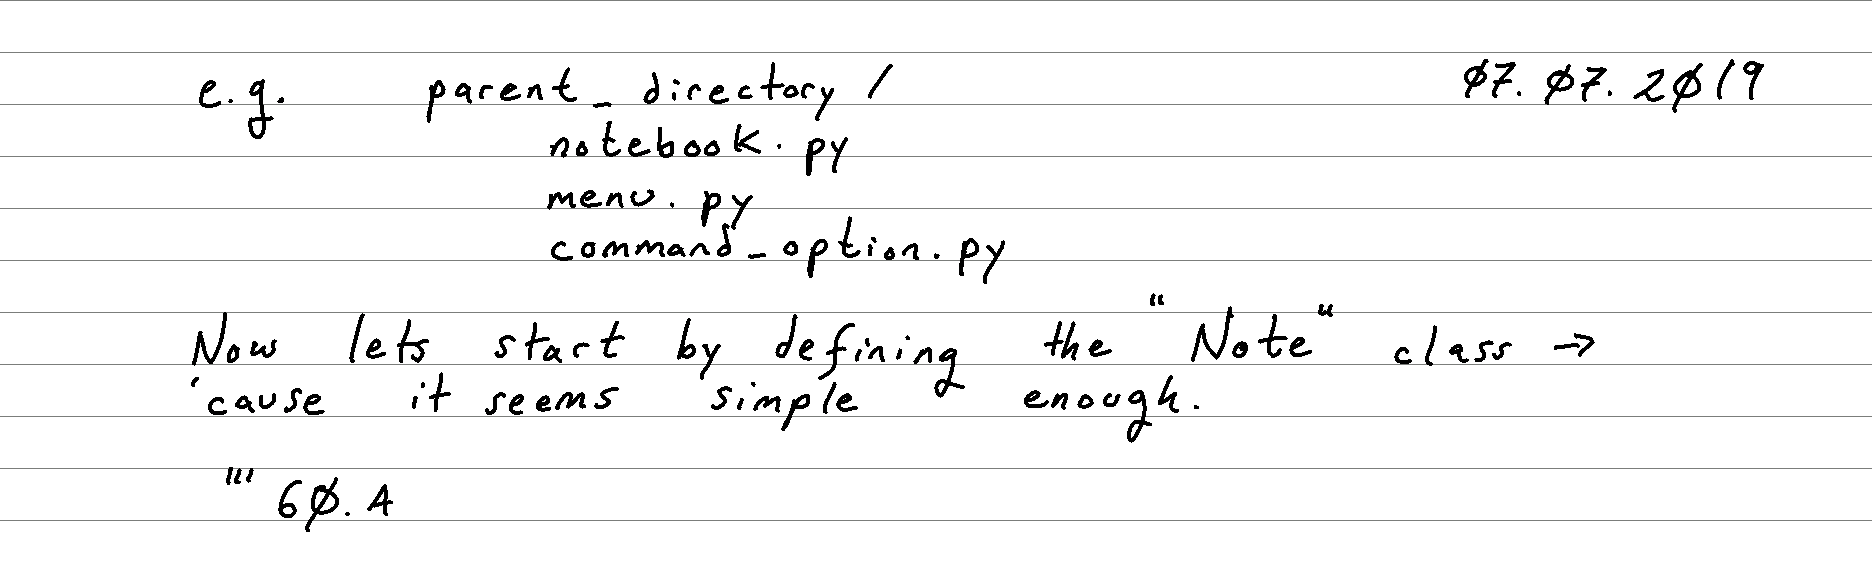 e.g. parent_directory/ 07.07.2019
notebook.py
menu.py
command_option.py
Now lets start by defining the "Note" class →
'cause it seems simple enough.
''' 60.A